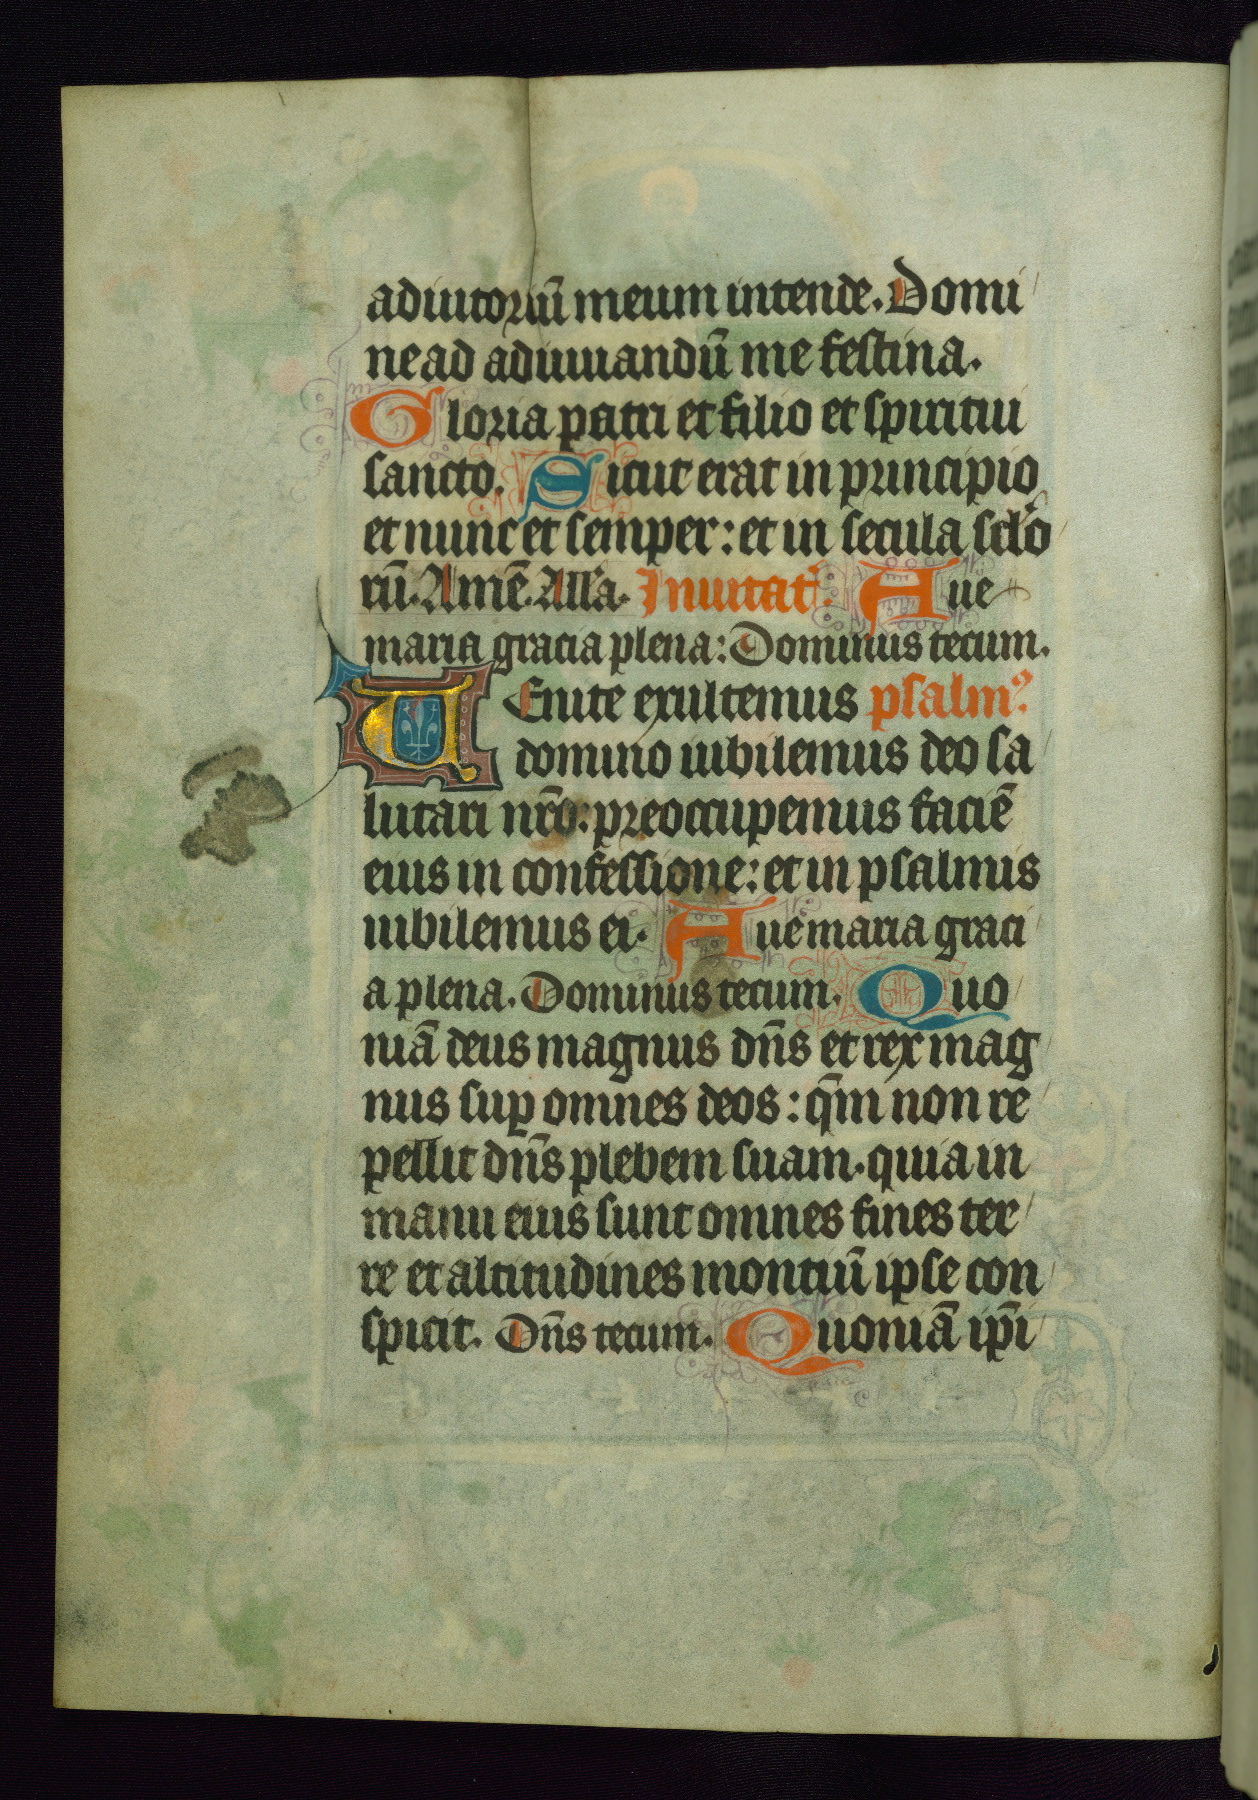 adiutoriū meum intende. Domi
ne ad adiuuandū me festina.
Gloria patri et filio et spiritui
sancto. Sicut erat in principio
et nunc et semper: et in secula sclo
rū. Amē. Alla. Inuitat. Aue
maria gracia plena: Dominus tecum.
UEnite exultemus psalmꝰ
domino iubilemus deo sa
lutari nr̄o: preoccupemus faciē
eius in confessione: et in psalmis
iubilemus ei. Aue maria graci
a plena. Dominus tecum. Quo
niā deus magnus dn̄s et rex mag
nus suꝑ omnes deos: qm̄ non re
pellit dn̄s plebem suam. quia in
manu eius sunt omnes fines ter
re et altitudines montiū ipse con
spicit. Dn̄s tecum. Quoniā ip̄i